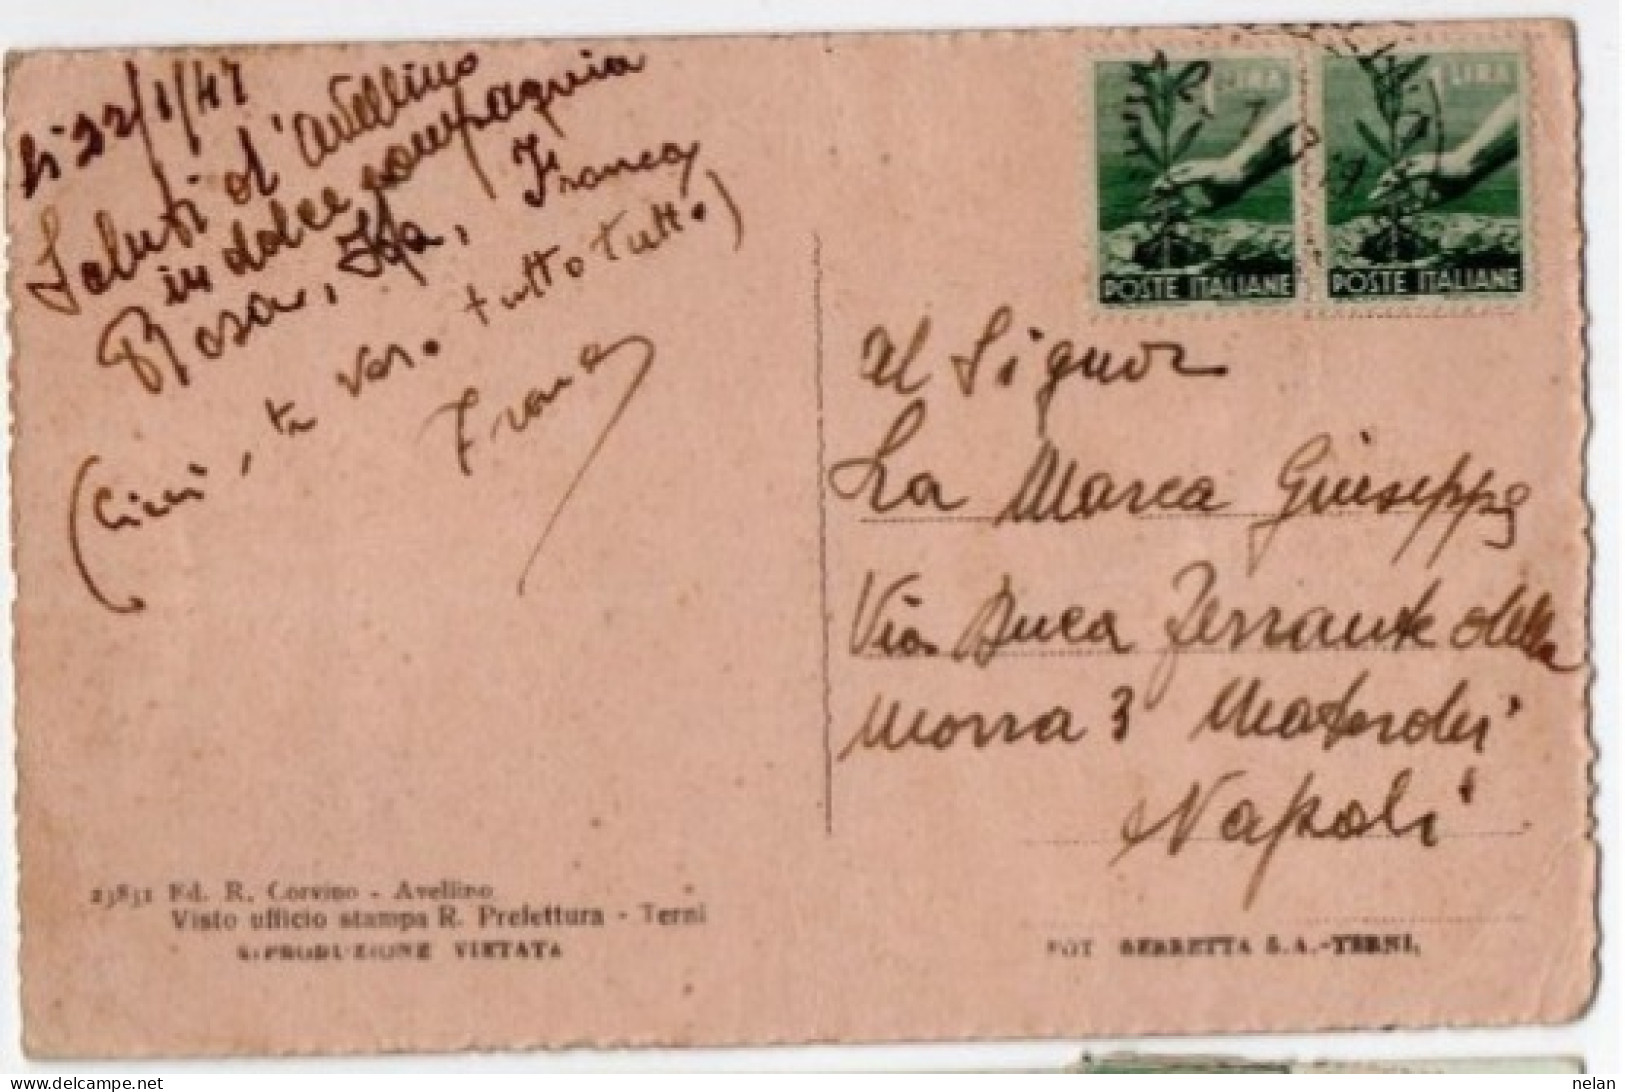 li 22/1/47
Saluti d'Avellino
in dolce compagnia
Rosa, Isa, Franca
(Cicci, te vero tutto tutto)
Franca
1 LIRA
1 LIRA
POSTE ITALIANE
POSTE ITALIANE
Al Signor
La Marca Giuseppe
Via Duca Ferrante della
Morra 3 Materdei
Napoli
23831 Ed. R. Corvino - Avellino
Visto ufficio stampa R. Prefettura - Terni
RIPRODUZIONE VIETATA
FOT BERRETTA S.A.-TERNI.
nelan